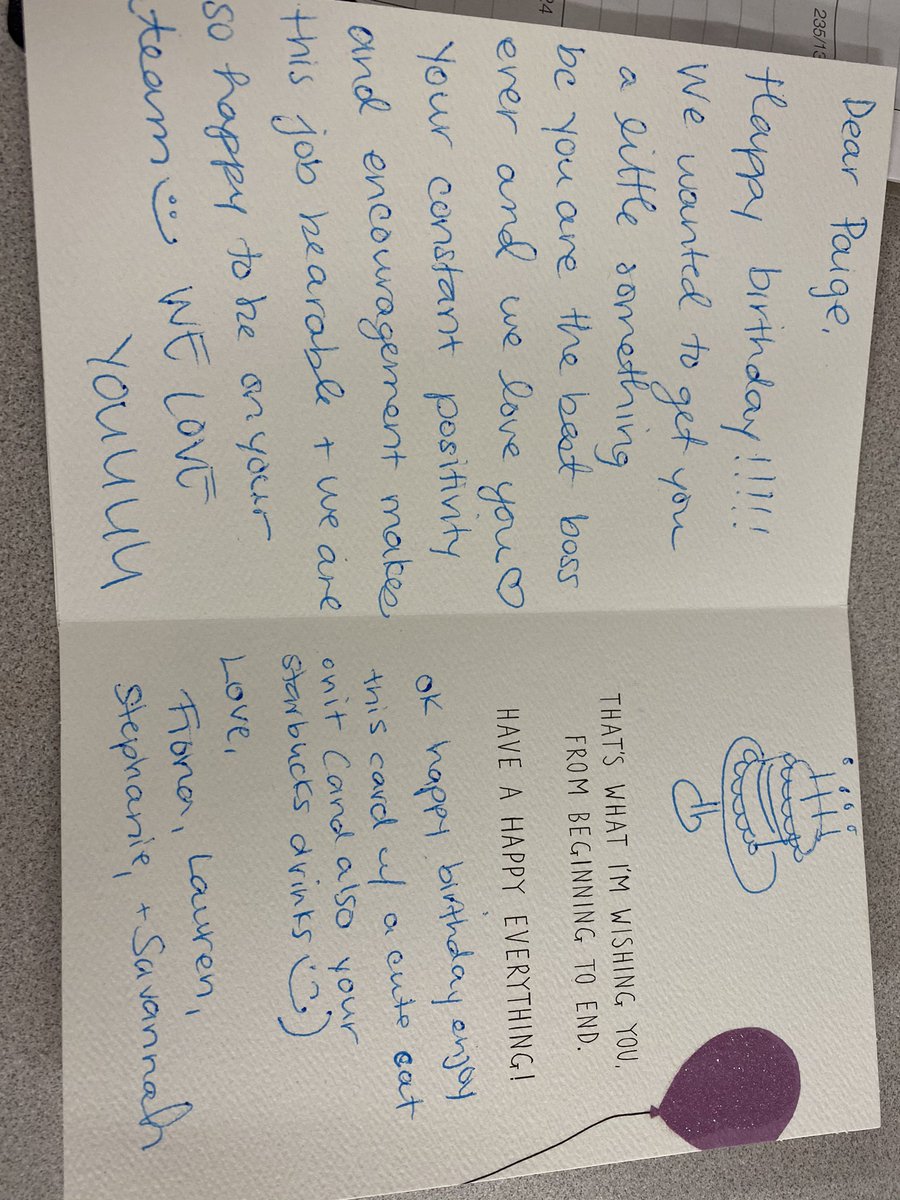 Dear Paige,
Happy birthday!!!!!
We wanted to get you
a little something
bc you are the best boss
ever and we love you♡
Your constant positivity
and encouragement makes
this job bearable + we are
so happy to be on your
team :) WE LOVE
YOUUUU
THAT'S WHAT I'M WISHING YOU,
FROM BEGINNING TO END.
HAVE A HAPPY EVERYTHING!
OK happy birthday enjoy
this card w/ a cute cat
on it (and also your
starbucks drinks :))
Love,
Fiona, Lauren,
Stephanie, + Savannah
235/13